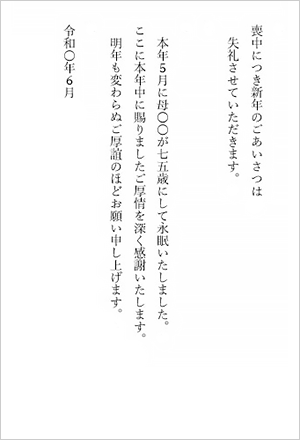 喪中につき新年のごあいさつは
失礼させていただきます。
本年5月に母〇〇が七五歳にして永眠いたしました。
ここに本年中に賜りましたご厚情を深く感謝いたします。
明年も変わらぬご厚誼のほどお願い申し上げます。
令和〇年6月